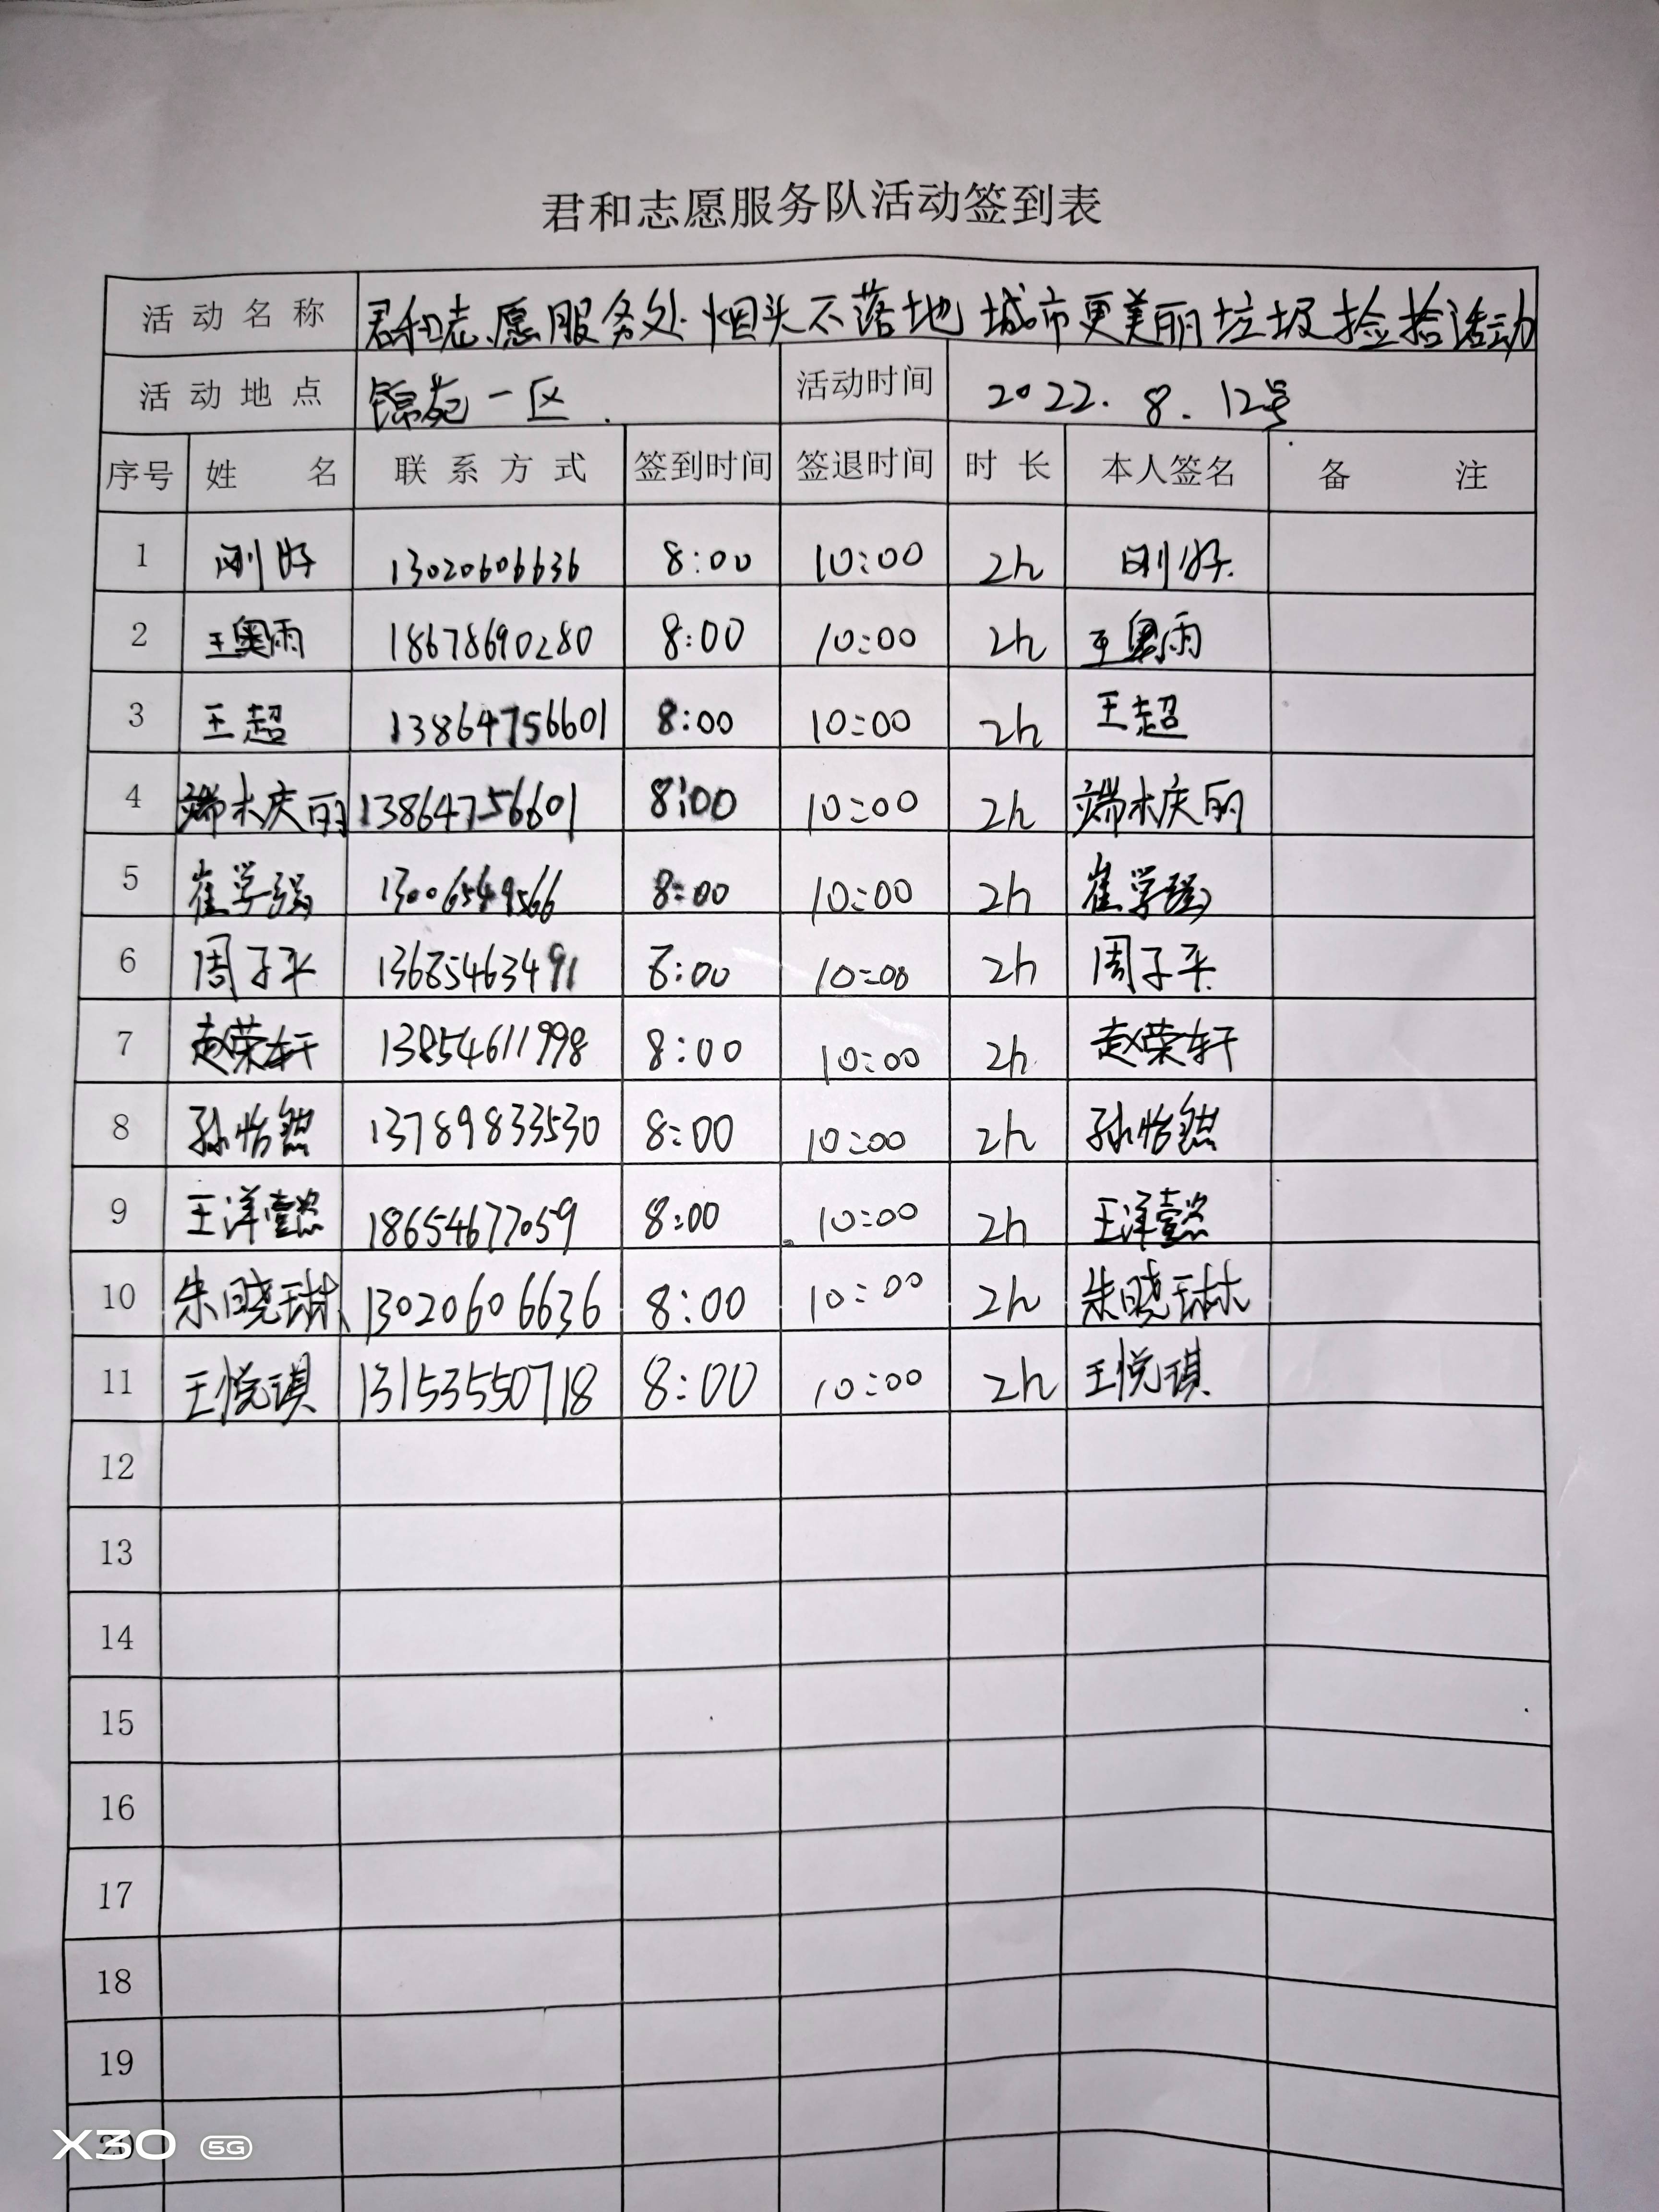 君和志愿服务队活动签到表
活动名称 君和志愿服务处烟头不落地 城市更美丽垃圾捡拾活动
活动地点 锦苑一区. 活动时间 2022.8.12号
序号 姓 名 联系方式 签到时间 签退时间 时长 本人签名 备 注
1 刚好 13020606636 8:00 10:00 2h 刚好.
2 王奥雨 18678690280 8:00 10:00 2h 王奥雨
3 王超 13864756601 8:00 10:00 2h 王超
4 端木庆丽 13864756601 8:00 10:00 2h 端木庆丽
5 崔学强 13006549566 8:00 10:00 2h 崔学强
6 周子平 13685463491 8:00 10:00 2h 周子平
7 赵荣轩 13854611998 8:00 10:00 2h 赵荣轩
8 孙怡然 13789833530 8:00 10:00 2h 孙怡然
9 王洋懿 18654677059 8:00 10:00 2h 王洋懿
10 朱晓琳 13020606636 8:00 10:00 2h 朱晓琳
11 王悦琪 13153550718 8:00 10:00 2h 王悦琪
12
13
14
15
16
17
18
19
20
X30 5G